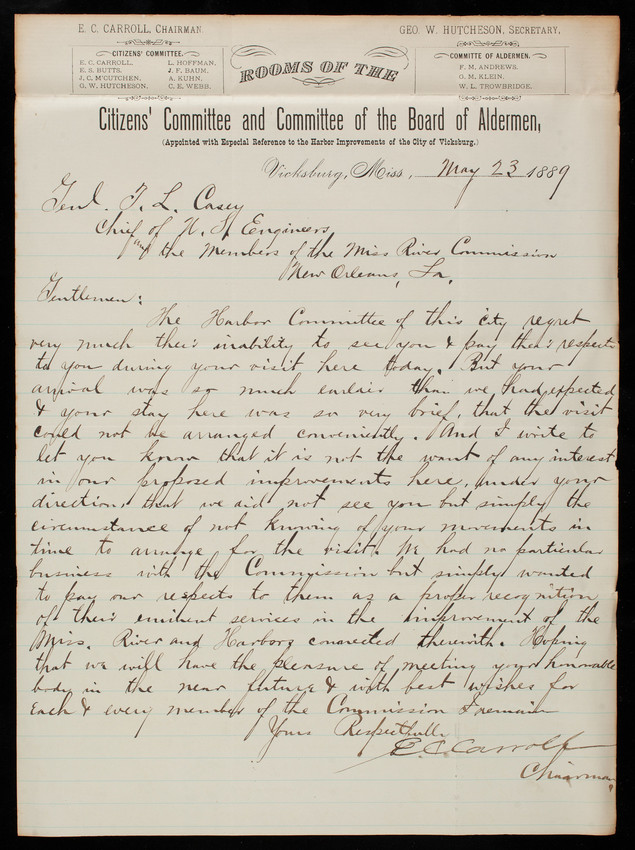 E. C. CARROLL, CHAIRMAN.
GEO. W. HUTCHESON, SECRETARY,
CITIZENS' COMMITTEE.
E. C. CARROLL,
L. HOFFMAN,
E. S. BUTTS,
J. F. BAUM,
J. C. M'CUTCHEN,
A. KUHN,
G. W. HUTCHESON,
C. E. WEBB.
ROOMS OF THE
COMMITTE OF ALDERMEN.
F. M. ANDREWS,
G. M. KLEIN,
W. L. TROWBRIDGE.
Citizens' Committee and Committee of the Board of Aldermen,
(Appointed with Especial Reference to the Harbor Improvements of the City of Vicksburg.)
Vicksburg, Miss, May 23 1889
Genl. T. L. Casey
Chief of U. S. Engineers
and the Members of the Miss River Commission
New Orleans, La.
Gentlemen:
The Harbor Committee of this city regret
very much their inability to see you & pay their respects
to you during your visit here today. But your
arrival was so much earlier than we had expected
& your stay here was so very brief, that the visit
could not be arranged conveniently. And I write to
let you know that it is not the want of any interest
in our proposed improvements here, under your
direction, that we did not see you but simply the
circumstance of not knowing of your movements in
time to arrange for the visit. We had no particular
business with the Commission but simply wanted
to pay our respects to them as a proper recognition
of their eminent services in the improvement of the
Miss. River and Harbors connected therewith. Hoping
that we will have the pleasure of meeting your honorable
body in the near future & with best wishes for
each & every member of the Commission I remain
Yours Respectfully
E. C. Carroll
Chairman